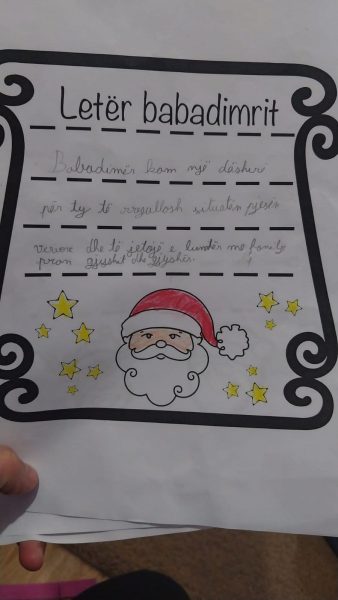 Letër babadimrit
Babadimër kam një dëshirë
për ty të rregallosh situatën
dhe të jetojë e lumtur me family
pran gjyshit dhe gjyshës.